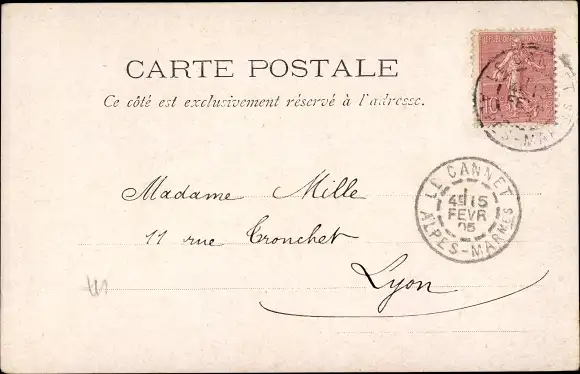 CARTE POSTALE
Ce côté est exclusivement réservé à l'adresse.
10
FEVR
ALPES-MARMES
LE CANNET
4E 15
FEVR
05
ALPES-MARMES
Madame Mille
11 rue Tronchet
Lyon